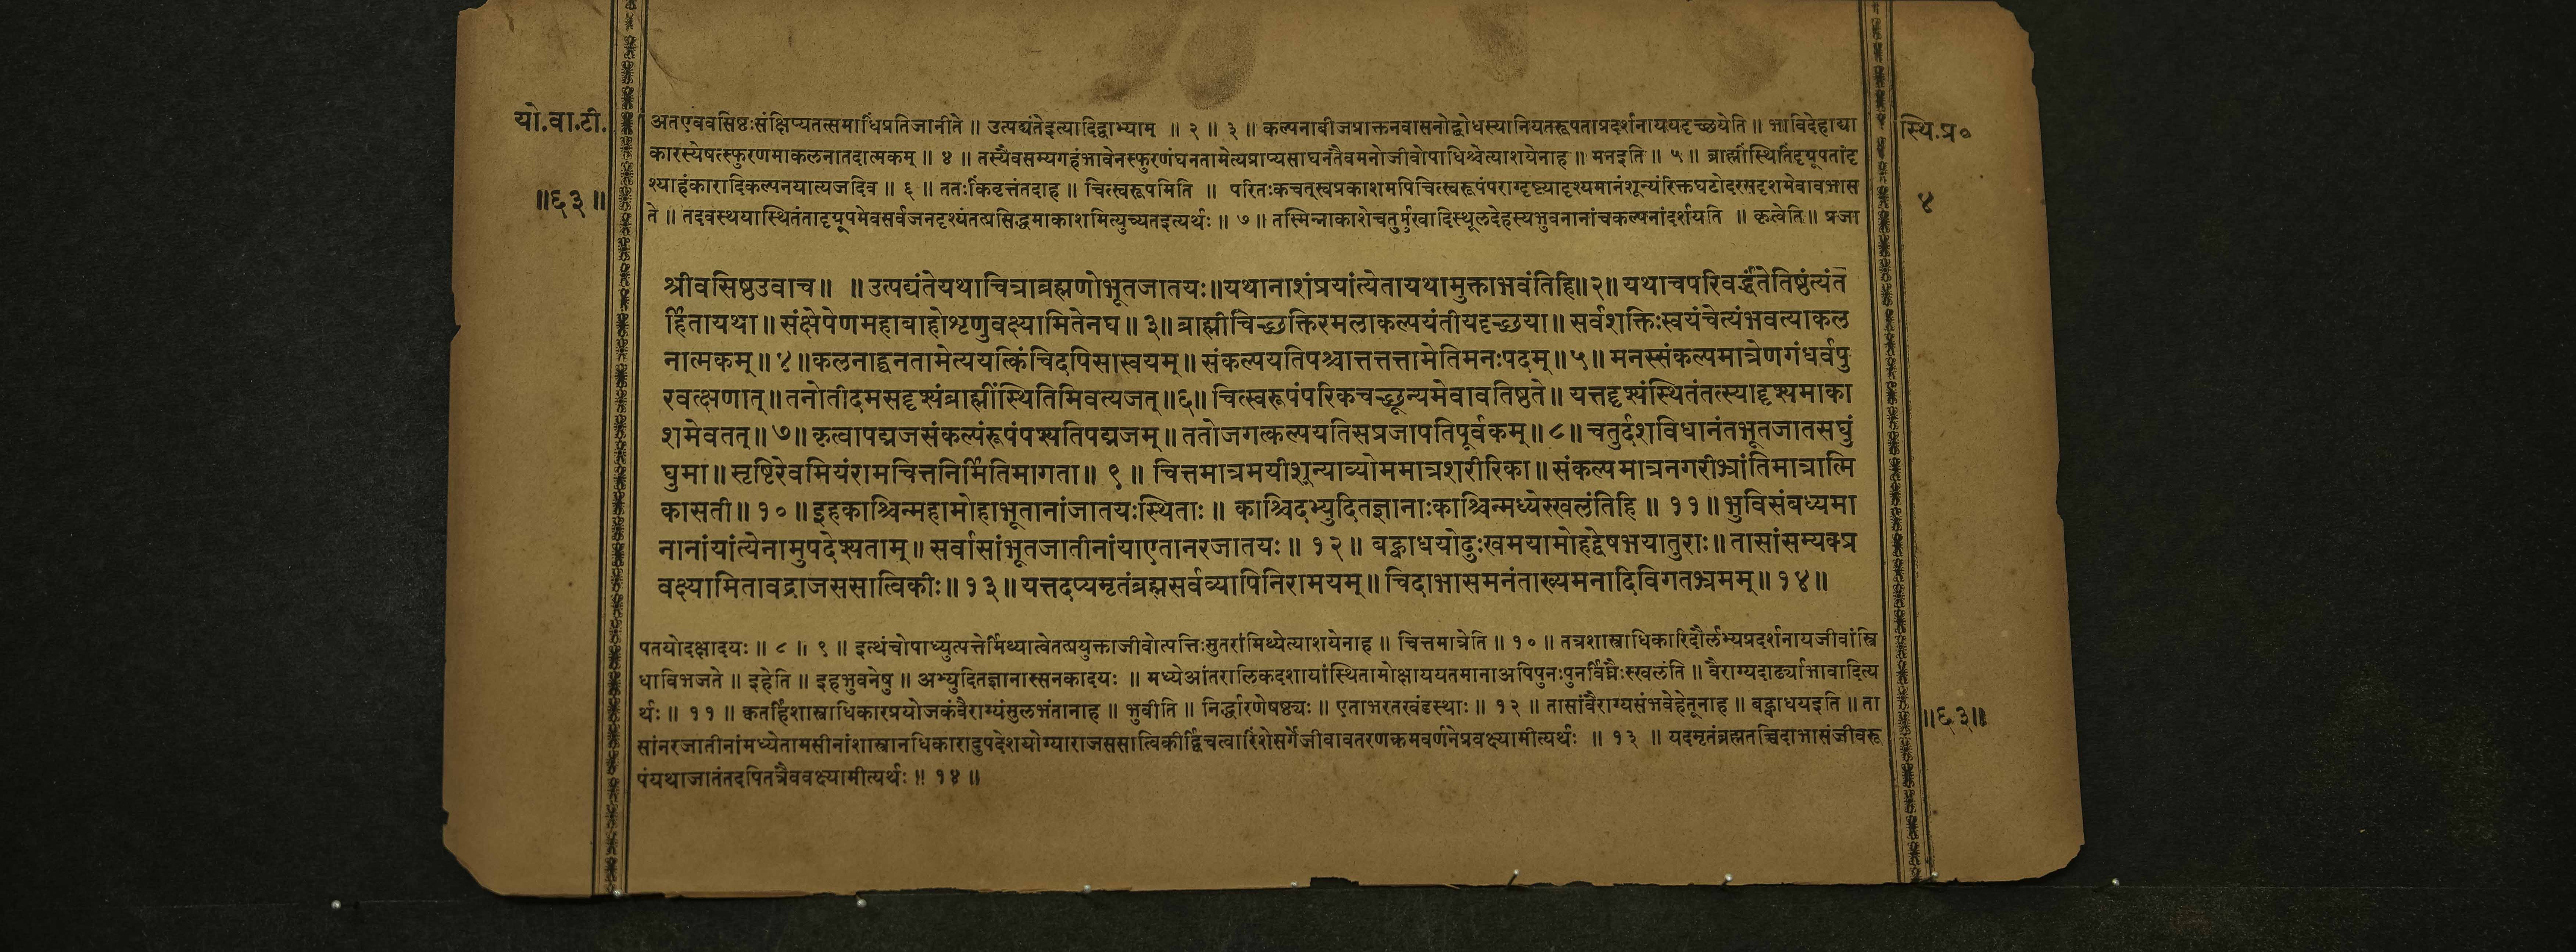 यो.वा.टी.
॥६३॥
स्थि.प्र०
४
अतएववसिष्ठःसंक्षिप्यतत्समाधिंप्रतिजानीते ॥ उत्पद्यंतेइत्यादिद्वाभ्याम् ॥ २ ॥ ३ ॥ कल्पनाबीजप्राक्तनवासनोद्बोधस्यानियतरूपताप्रदर्शनाययदृच्छयेति ॥ भाविदेहाद्या
कारस्येषत्स्फुरणमाकलनातदात्मकम् ॥ ४ ॥ तस्यैवसम्यगहंभावेनस्फुरणंघनतामेत्यप्राप्यसाघनतैवमनोजीवोपाधिश्चेत्याशयेनाह ॥ मनइति ॥ ५ ॥ ब्राह्मींस्थितिंदृग्रूपतांदृ
श्याहंकारादिकल्पनयात्यजदिव ॥ ६ ॥ ततःकिंवृत्तंतदाह ॥ चित्स्वरूपमिति ॥ परितःकचत्स्वप्रकाशमपिचित्स्वरूपंपराग्दृष्ट्यादृश्यमानंशून्यंरिक्तघटोदरसदृशमेवावभास
ते ॥ तदवस्थयास्थितंतादृग्रूपमेवसर्वजनदृश्यंतत्प्रसिद्धमाकाशमित्युच्यतइत्यर्थः ॥ ७ ॥ तस्मिन्नाकाशेचतुर्मुखादिस्थूलदेहस्यभुवनानांचकल्पनांदर्शयति ॥ कृत्वेति ॥ प्रजा
श्रीवसिष्ठउवाच ॥ ॥ उत्पद्यंतेयथाचित्राब्रह्मणोभूतजातयः ॥ यथानाशंप्रयांत्येतायथामुक्ताभवंतिहि ॥ २ ॥ यथाचपरिवर्द्धंतेतिष्ठंत्यंत
र्हितायथा ॥ संक्षेपेणमहाबाहोशृणुवक्ष्यामितेनघ ॥ ३ ॥ ब्राह्मीचिच्छक्तिरमलाकल्पयंतीयदृच्छया ॥ सर्वशक्तिःस्वयंचेत्यंभवत्याकल
नात्मकम् ॥ ४ ॥ कलनाद्घनतामेत्ययत्किंचिदपिसास्वयम् ॥ संकल्पयतिपश्चात्तत्तत्तामेतिमनःपदम् ॥ ५ ॥ मनस्संकल्पमात्रेणगंधर्वपु
रवत्क्षणात् ॥ तनोतीदमसदृश्यंब्राह्मींस्थितिमिवत्यजत् ॥ ६ ॥ चित्स्वरूपंपरिकचच्छून्यमेवावतिष्ठते ॥ यत्तद्दृश्यंस्थितंतत्स्याद्दृश्यमाका
शमेवतत् ॥ ७ ॥ कृत्वापद्मजसंकल्पंरूपंपश्यतिपद्मजम् ॥ ततोजगत्कल्पयतिसप्रजापतिपूर्वकम् ॥ ८ ॥ चतुर्दशविधानंतभूतजातसघुं
घुमा ॥ सृष्टिरेवमियंरामचित्तनिर्मितिमागता ॥ ९ ॥ चित्तमात्रमयीशून्याव्योममात्रशरीरिका ॥ संकल्पमात्रनगरीभ्रांतिमात्रात्मि
कासती ॥ १० ॥ इहकाश्चिन्महामोहाभूतानांजातयःस्थिताः ॥ काश्चिदभ्युदितज्ञानाःकाश्चिन्मध्येस्खलंतिहि ॥ ११ ॥ भुविसंबध्यमा
नानांयांत्येनामुपदेश्यताम् ॥ सर्वासांभूतजातीनांयाएतानरजातयः ॥ १२ ॥ बह्वाधयोदुःखमयामोहद्वेषभयातुराः ॥ तासांसम्यक्प्र
वक्ष्यामितावद्राजससात्विकीः ॥ १३ ॥ यत्तदप्यमृतंब्रह्मसर्वव्यापिनिरामयम् ॥ चिदाभासमनंताख्यमनादिविगतभ्रमम् ॥ १४ ॥
पतयोदक्षादयः ॥ ८ ॥ ९ ॥ इत्थंचोपाध्युत्पत्तेर्मिथ्यात्वेतत्प्रयुक्ताजीवोत्पत्तिःसुतरांमिथ्येत्याशयेनाह ॥ चित्तमात्रेति ॥ १० ॥ तत्रशास्त्राधिकारिदौर्लभ्यप्रदर्शनायजीवांस्त्रि
धाविभजते ॥ इहेति ॥ इहभुवनेषु ॥ अभ्युदितज्ञानास्सनकादयः ॥ मध्येआंतरालिकदशायांस्थितामोक्षाययतमानाअपिपुनःपुनर्विघ्नैःस्खलंति ॥ वैराग्यदार्ढ्याभावादित्य
र्थः ॥ ११ ॥ क्वतर्हिशास्त्राधिकारप्रयोजकंवैराग्यंसुलभंतानाह ॥ भुवीति ॥ निर्द्धारणेषष्ठ्यः ॥ एताभरतखंडस्थाः ॥ १२ ॥ तासांवैराग्यसंभवेहेतूनाह ॥ बह्वाधयइति ॥ ता
सांनरजातीनांमध्येतामसीनांशास्त्रानधिकारादुपदेशयोग्याराजससात्विकीर्द्विचत्वारिंशेसर्गेजीवावतरणक्रमवर्णनेप्रवक्ष्यामीत्यर्थः ॥ १३ ॥ यदमृतंब्रह्मतच्चिदाभासंजीवरू
पंयथाजातंतदपितत्रैववक्ष्यामीत्यर्थः ॥ १४ ॥
॥६३॥